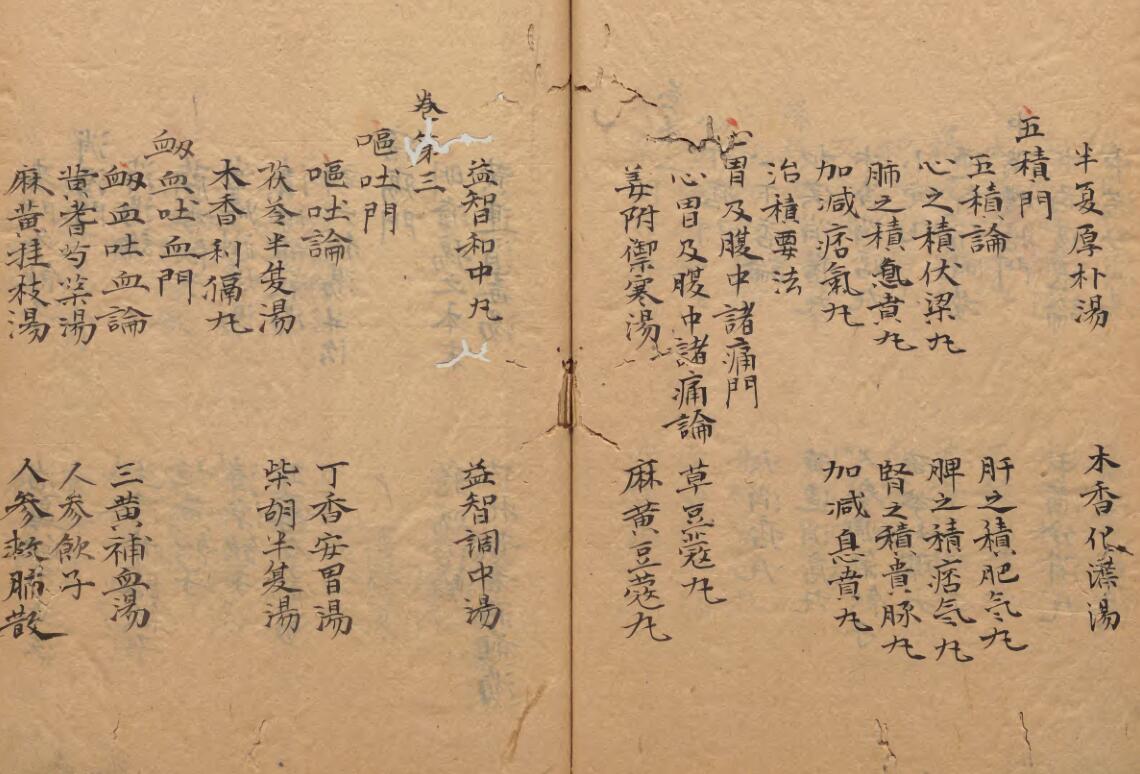 半夏厚朴湯
木香化滞湯
五積門
五積論
肝之積肥气丸
心之積伏梁丸
脾之積痞气丸
肺之積息賁丸
腎之積賁豚丸
加減痞氣丸
加減息賁丸
治積要法
心胃及腹中諸痛門
心胃及腹中諸痛論
草豆蔻丸
姜附禦寒湯
麻黄豆蔻丸
益智和中丸
益智調中湯
卷第三
嘔吐門
嘔吐論
丁香安胃湯
茯苓半夏湯
柴胡半夏湯
木香利膈丸
衂血吐血門
衂血吐血論
三黄補血湯
黄耆芍藥湯
人参飲子
麻黄桂枝湯
人参救肺散